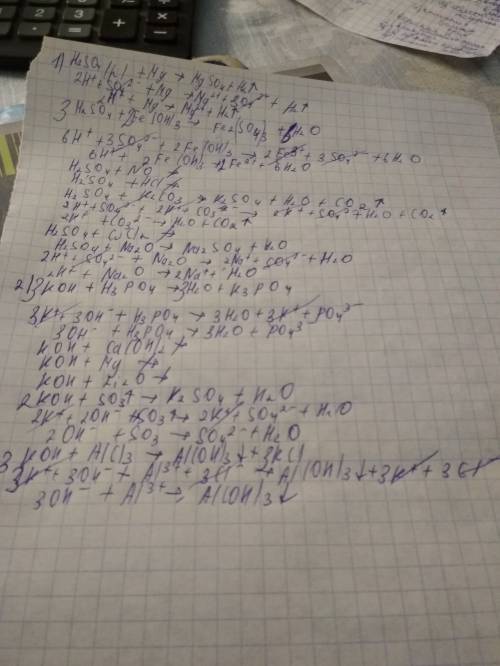 1) H₂SO₄ + Mg → MgSO₄ + H₂↑
2H⁺ + SO₄²⁻ + Mg → Mg²⁺ + SO₄²⁻ + H₂↑
2H⁺ + Mg → Mg²⁺ + H₂↑
3H₂SO₄ + 2Fe(OH)₃ → Fe₂(SO₄)₃ + 6H₂O
6H⁺ + 3SO₄²⁻ + 2Fe(OH)₃ → 2Fe³⁺ + 3SO₄²⁻ + 6H₂O
6H⁺ + 2Fe(OH)₃ → 2Fe³⁺ + 6H₂O
H₂SO₄ + NO ↛
H₂SO₄ + HCl ↛
H₂SO₄ + K₂CO₃ → K₂SO₄ + H₂O + CO₂↑
2H⁺ + SO₄²⁻ + 2K⁺ + CO₃²⁻ → 2K⁺ + SO₄²⁻ + H₂O + CO₂↑
2H⁺ + CO₃²⁻ → H₂O + CO₂↑
H₂SO₄ + CuCl₂ ↛
H₂SO₄ + Na₂O → Na₂SO₄ + H₂O
2H⁺ + SO₄²⁻ + Na₂O → 2Na⁺ + SO₄²⁻ + H₂O
2H⁺ + Na₂O → 2Na⁺ + H₂O
2) 3KOH + H₃PO₄ → 3H₂O + K₃PO₄
3K⁺ + 3OH⁻ + H₃PO₄ → 3H₂O + 3K⁺ + PO₄³⁻
3OH⁻ + H₃PO₄ → 3H₂O + PO₄³⁻
KOH + Ca(OH)₂ ↛
KOH + Mg ↛
KOH + Li₂O ↛
2KOH + SO₃ → K₂SO₄ + H₂O
2K⁺ + 2OH⁻ + SO₃ → 2K⁺ + SO₄²⁻ + H₂O
2OH⁻ + SO₃ → SO₄²⁻ + H₂O
3KOH + AlCl₃ → Al(OH)₃↓ + 3KCl
3K⁺ + 3OH⁻ + Al³⁺ + 3Cl⁻ → Al(OH)₃↓ + 3K⁺ + 3Cl⁻
3OH⁻ + Al³⁺ → Al(OH)₃↓